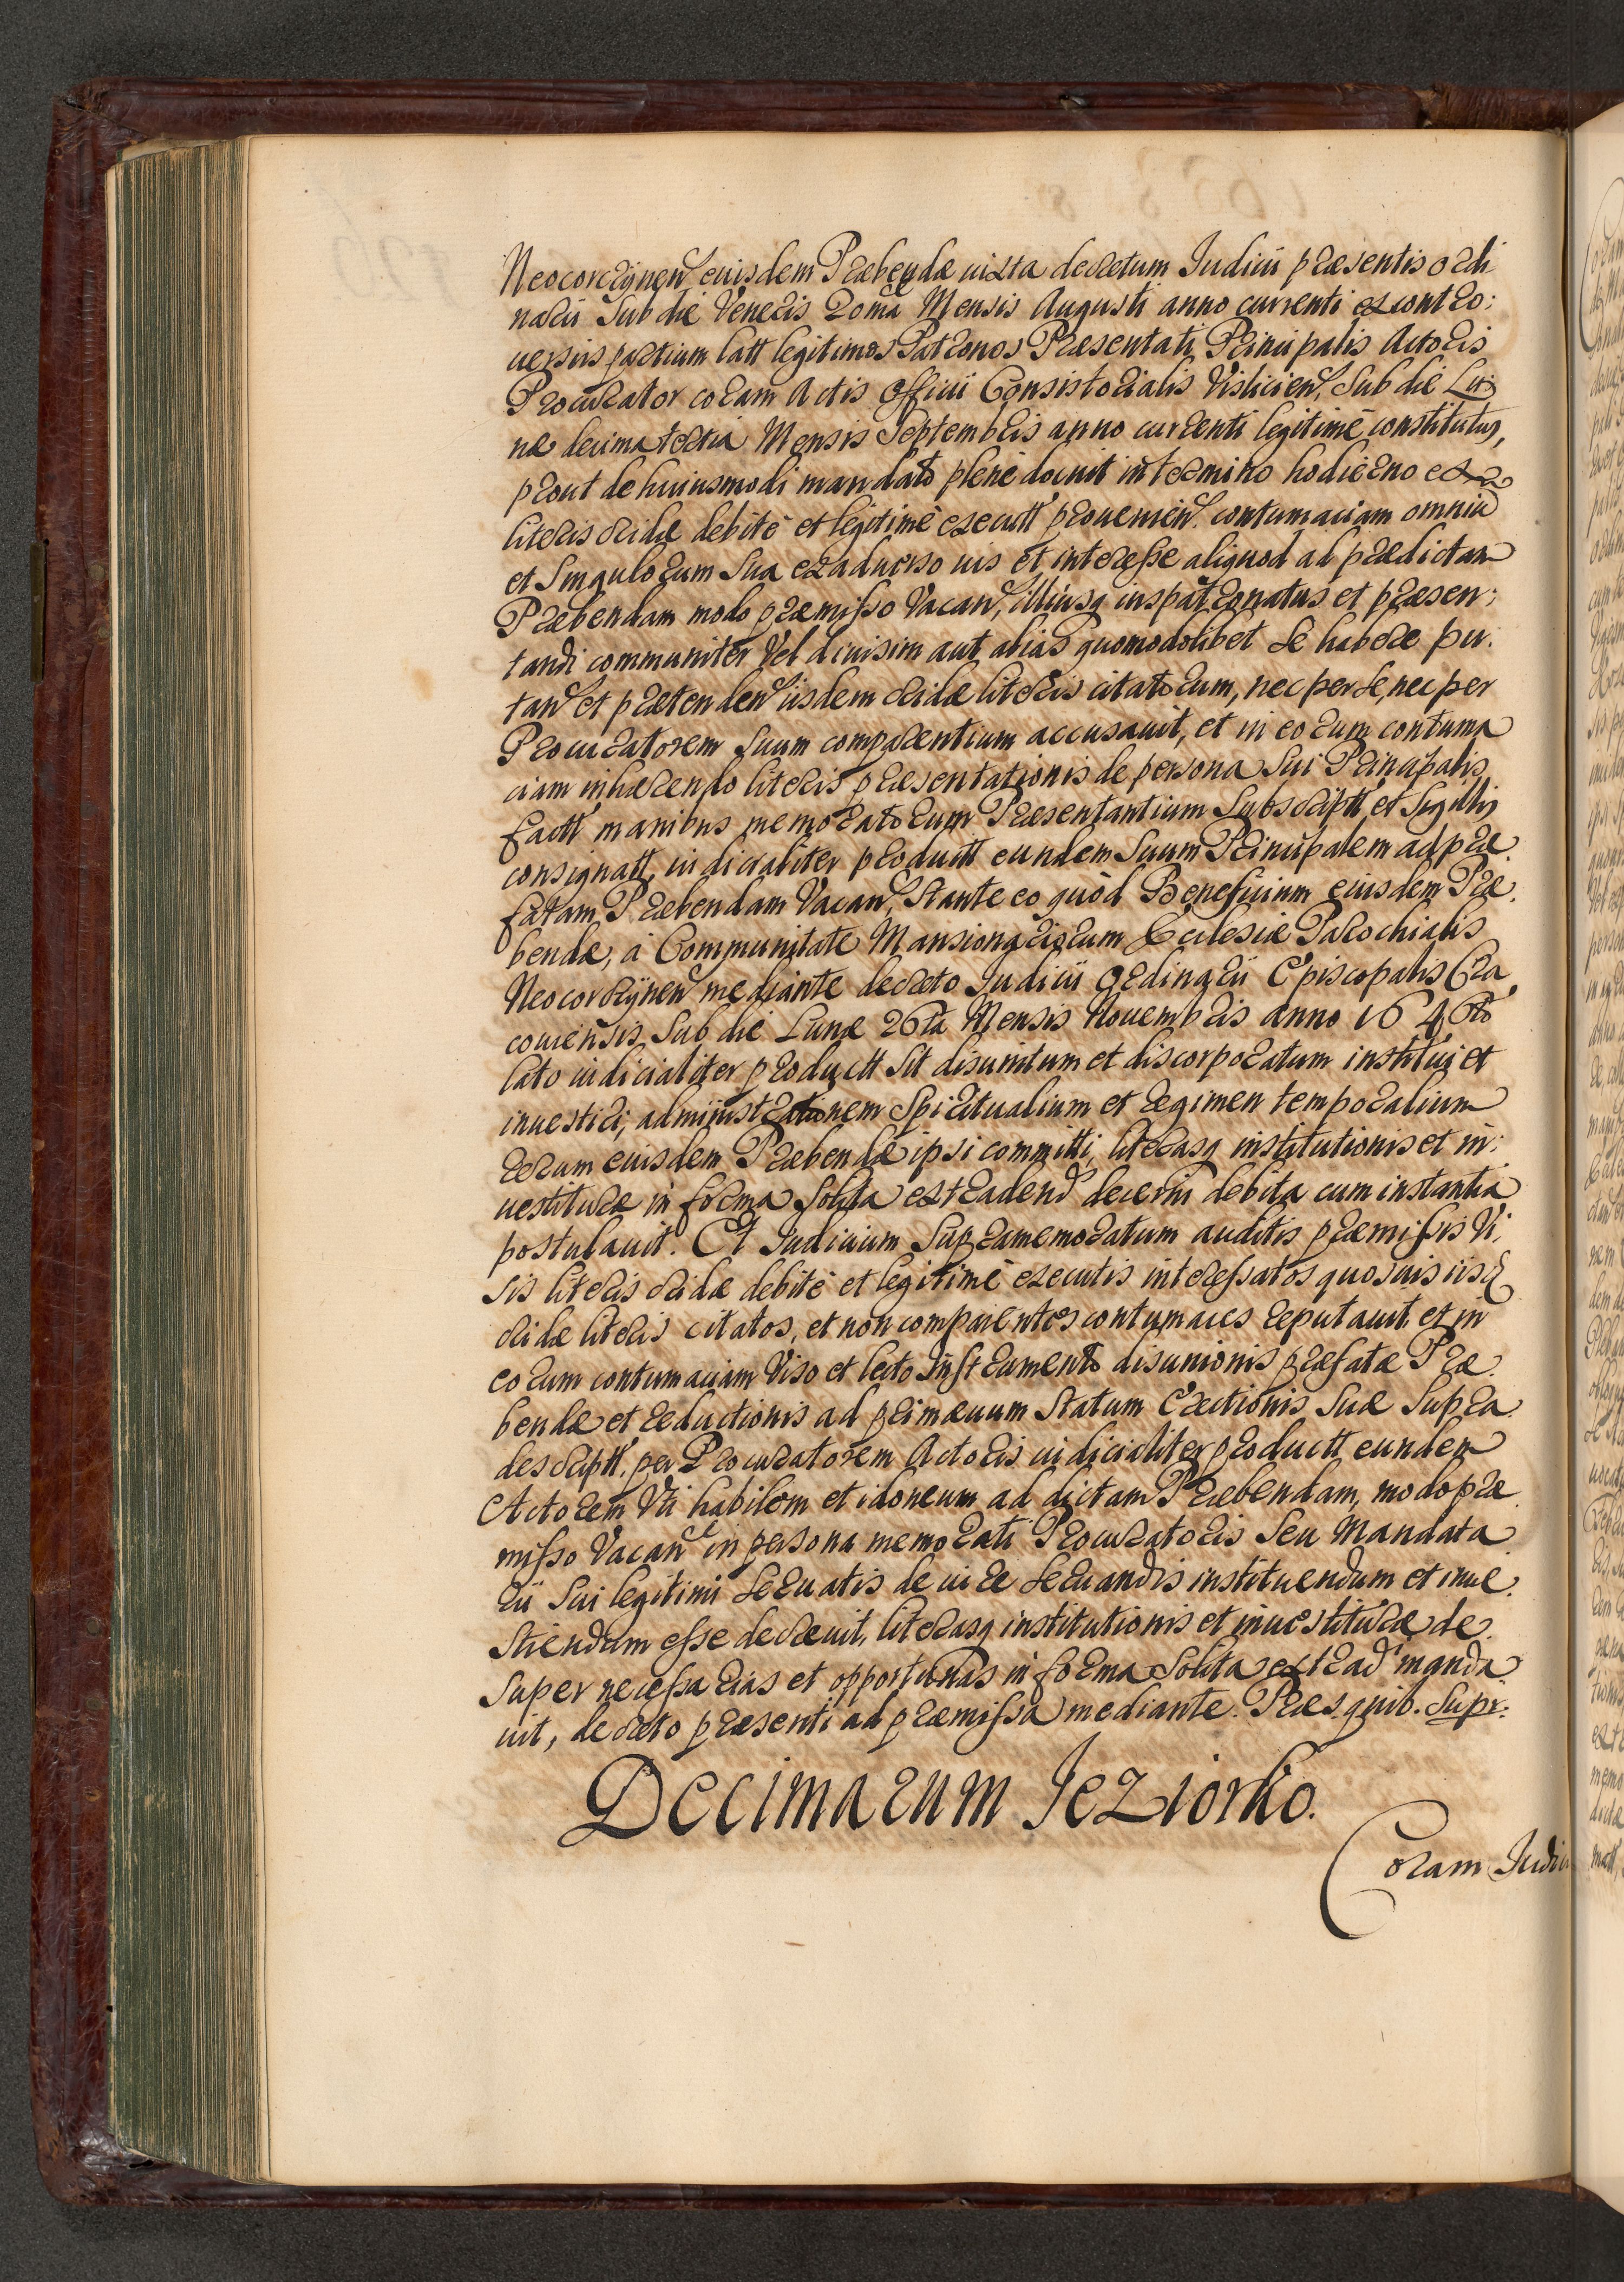 Neocorczynen̄ eiusdem Præbendæ iuxta decretum Iudicii præsentis ordi
narii Sub die Veneris 2oma Mensis Augusti anno currenti ex contro:
uersiis partium latt legitimos Patronos Præsentati Principalis Actoris
Procurator coram Actis Officii Consistorialis Vislicien̄, Sub die Lu:
næ decima tertia Mensis Septembris anno currenti legitimè constitutus,
prout de huiusmodi mandato plenè docuit in termino hodierno ex
literis cridæ debitè et legitimè executt prouenien̄ contumaciam omniū
et Singulorum Sua ex aduerso ius et interesse aliquod ad prædictam
Præbendam modo præmisso Vacan̄, illiusq iuspatronatus et præsen:
tandi communiter Vel diuisim aut alias quomodolibet Se habere pu:
tan̄ et prætenden̄ iisdem cridæ literis citatorum, nec per Se, nec per
Procuratorem Suum comparentium accusauit, et in eorum contuma
ciam inhærendo literis præsentationis de persona Sui Principalis
factt manibus memoratorum Præsentantium Subscriptt et Sigillis
consignatt, iudicialiter productt eundem Suum Principalem ad præ
fatam Præbendam Vacan̄, Stante eo quòd Beneficium eiusdem Præ
bendæ, à Communitate Mansionariorum Ecclesiæ Parochialis
Neocorczynen̄ mediante decreto Iudicii Ordinarii Episcopalis Cra
couiensis Sub die Lunæ 26ta Mensis Nouembris anno 1646to
lato iudicialiter productt Sit disunitum et discorporatum institui et
inuestiri, administrationem Spiritualium et regimen temporalium
rerum eiusdem Præbendæ ipsi committi, literasq institutionis et in:
uestituræ in forma Solita extradend̄ decerni debita cum instantia
postulauit. Et Iudicium Supramemoratum auditis præmissis Vi:
sis literis cridæ debitè et legitimè executis interessatos quosuis iisd
cridæ literis citatos, et non comparentes contumaces reputauit et in
eorum contumaciam Viso et lecto Instrumento disunionis præfatæ Præ
bendæ et reductionis ad primæuum Statum Erectionis Suæ Supra
descriptt, per Procuratorem Actoris iudicialiter productt eundem
Actorem Vti habilem et idoneum ad dictam Præbendam, modo præ
misso Vacan̄ in persona memorati Procuratoris Seu Mandata
rii Sui legitimi Seruatis de iure Seruandis instituendum et inue
Stiendum esse decreuit, literasq institutionis et inuestituræ de
Super necessarias et opportunas in forma Solita extrad manda
uit, decreto præsenti ad præmissa mediante. Præs. quib. Supr:
Decimarum Jeziorko.
Coram Iudic